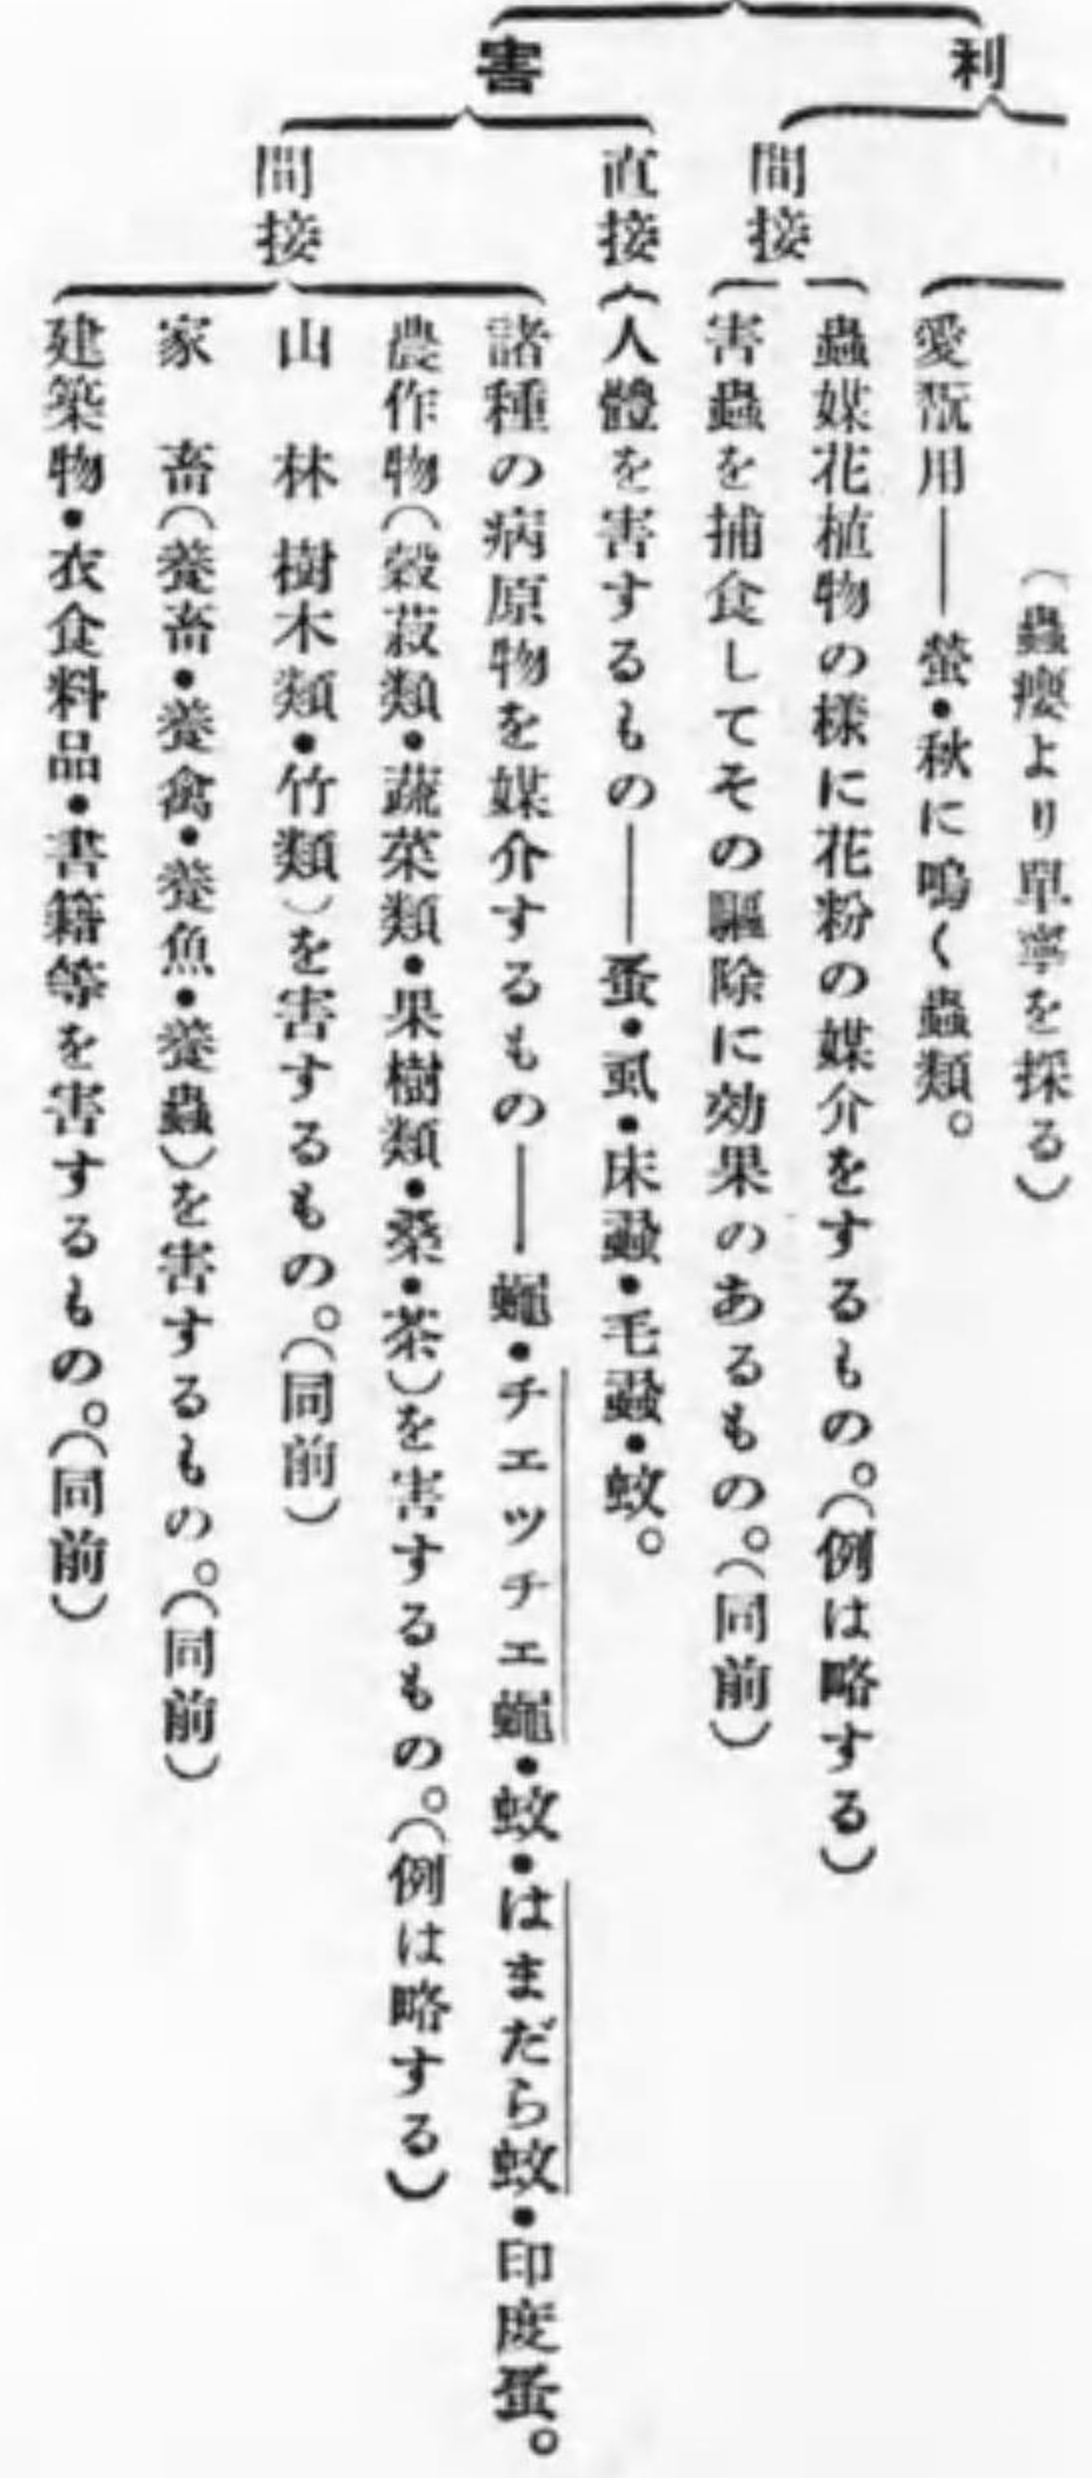 利
(蟲癭より單寧を採る)
愛翫用——螢・秋に鳴く蟲類。
間接
蟲媒花植物の様に花粉の媒介をするもの。(例は略する)
害蟲を捕食してその驅除に効果のあるもの。(同前)
害
直接
人體を害するもの——蚤・虱・床蝨・毛蝨・蚊。
間接
諸種の病原物を媒介するもの——蠅・チェッチェ蠅・蚊・はまだら蚊・印度蚤。
農作物(穀菽類・蔬菜類・果樹類・桑・茶)を害するもの。(例は略する)
山林 樹木類・竹類)を害するもの。(同前)
家畜(養畜・養禽・養魚・養蟲)を害するもの。(同前)
建築物・衣食料品・書籍等を害するもの。(同前)